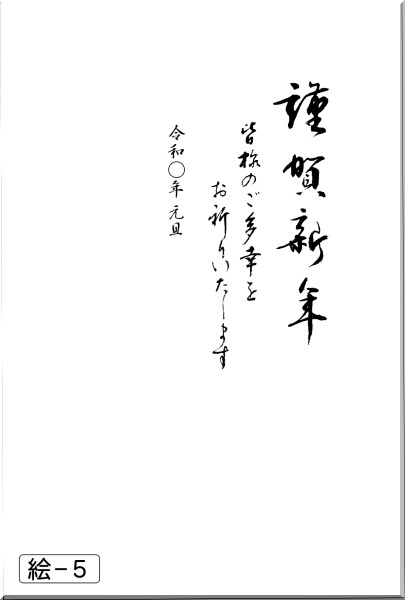 謹賀新年
皆様のご多幸を
お祈りいたします
令和〇年 元旦
絵-5